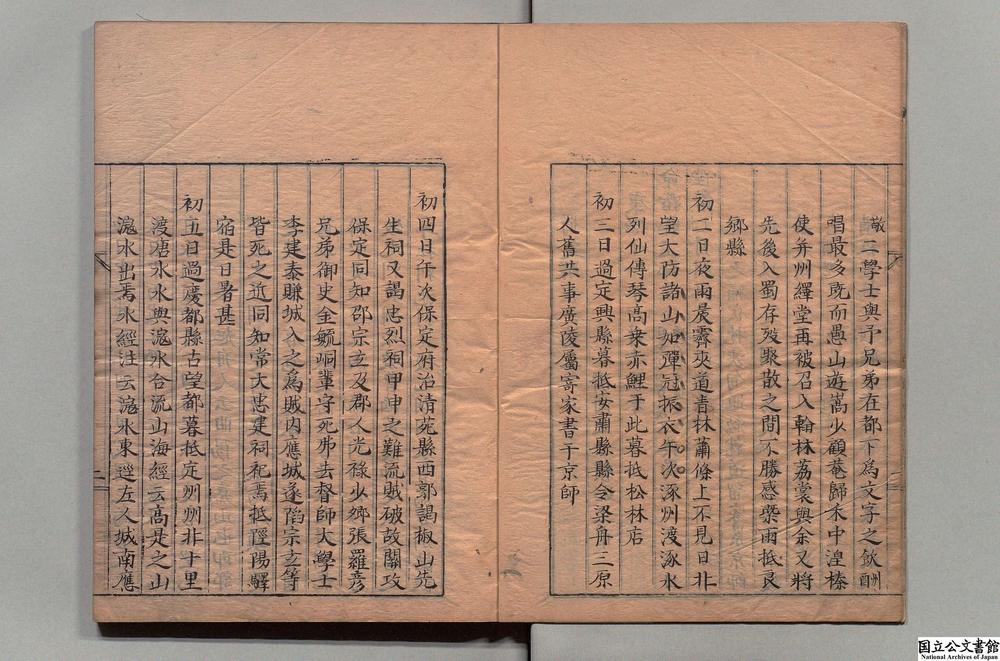 敬二學士與予兄弟在都下為文字之飲酬
唱最多既而愚山遊嵩少顧菴歸禾中湟榛
使并州繹堂再被召入翰林荔裳與余又將
先後入蜀存歿聚散之間不勝感槩雨抵良
鄉縣
初二日夜雨晨霽夾道青林蕭條上不見日北
望大防諸山如彈冠振衣午次涿州渡涿水
列仙傳琴高乗赤鯉于此暮抵松林店
初三日過定興縣暮抵安肅縣縣令梁舟三原
人舊共事廣陵屬寄家書于京師
初四日午次保定府治清苑縣西郭謁椒山先
生祠又謁忠烈祠甲申之難流賊破故關攻
保定同知邵宗玄及郡人光祿少卿張羅彦
兄弟御史金毓峒輩守死弗去督師大學士
李建泰賺城入之為賊内應城遂陷宗玄等
皆死之近同知常大忠建祠祀焉抵陘陽驛
宿是日暑甚
初五日過慶都縣古望都暮抵定州州北十里
渡唐水水與滱水合流山海經云高是之山
滱水出焉水經注云滱水東逕左人城南應
国立公文書館
National Archives of Japan